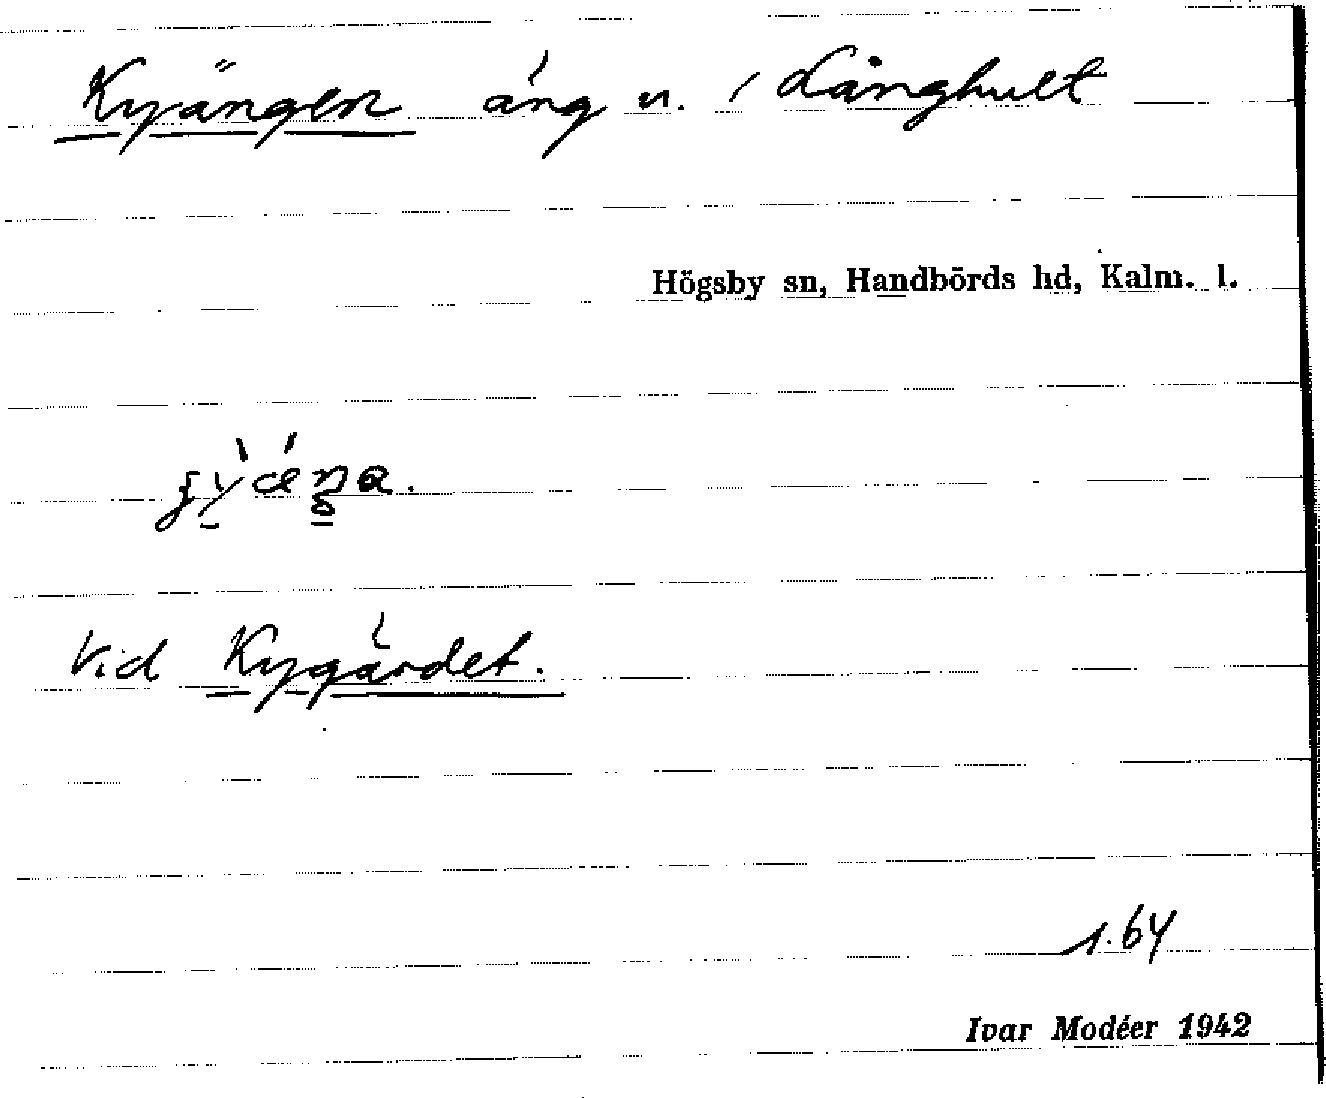 Kyängen äng n. i Långhult
Högsby sn, Handbörds hd, Kalm. l.
Vid Kygärdet.
1.64
Ivar Modéer 1942